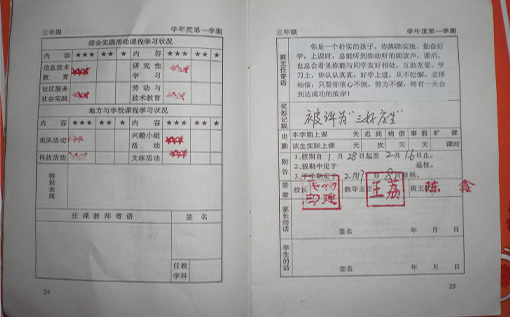 三年级 学年度第一学期
综合实践活动课程学习状况
内容 ★★★ ★★ ★ 内容 ★★★ ★★ ★
信息技术教育 研究性学习
社区服务社会实践 劳动与技术教育
地方与学校课程学习状况
内容 ★★★ ★★ ★ 内容 ★★★ ★★ ★
班队活动 兴趣小组活动
科技活动 文体活动
特别表现
任课教师寄语 签名
任教学科
24
三年级 学年度第一学期
班主任寄语
你是一个朴实的孩子,你脚踏实地、勤奋好
学,上课时,总能听到你动听的朗读声,课后,
也总会看见你能与同学友好相处、互助友爱。学
习上,你认认真真,好学上进,从不松懈。老师
相信:只要你信心不倒,努力不懈,终有一天会
到达成功的彼岸!
奖惩记载
被评为“三好学生”
出勤
本学期上课 天 迟到 病假 事假 旷课
该生实际上课 天 次 天 天 课时
附告
1、假期自1月28日起至2月16日止。
2、假期中定于 返校。
3、下学期定于2月17日
签章
校长 教导主任 王荔 班主任 陈鑫
家长的话
签名 年 月 日
学生的话
签名 年 月 日
25